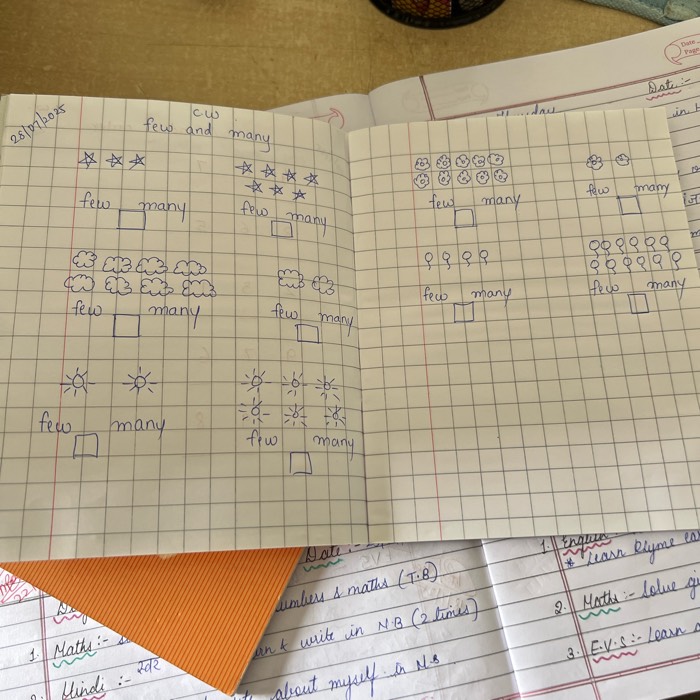 28/07/2025
CW
few and many
few many
few many
few many
few many
few many
few many
few many
few many
few many
few many
Date
Page
Date :-
day
in
Date :-
numbers & maths (T.B)
write in N.B (2 times)
about myself in N.B
1. Maths :-
Hindi :- स्वर
1. English
* learn Rhyme
2. Maths :- Solve
3. E.V.S :- Learn